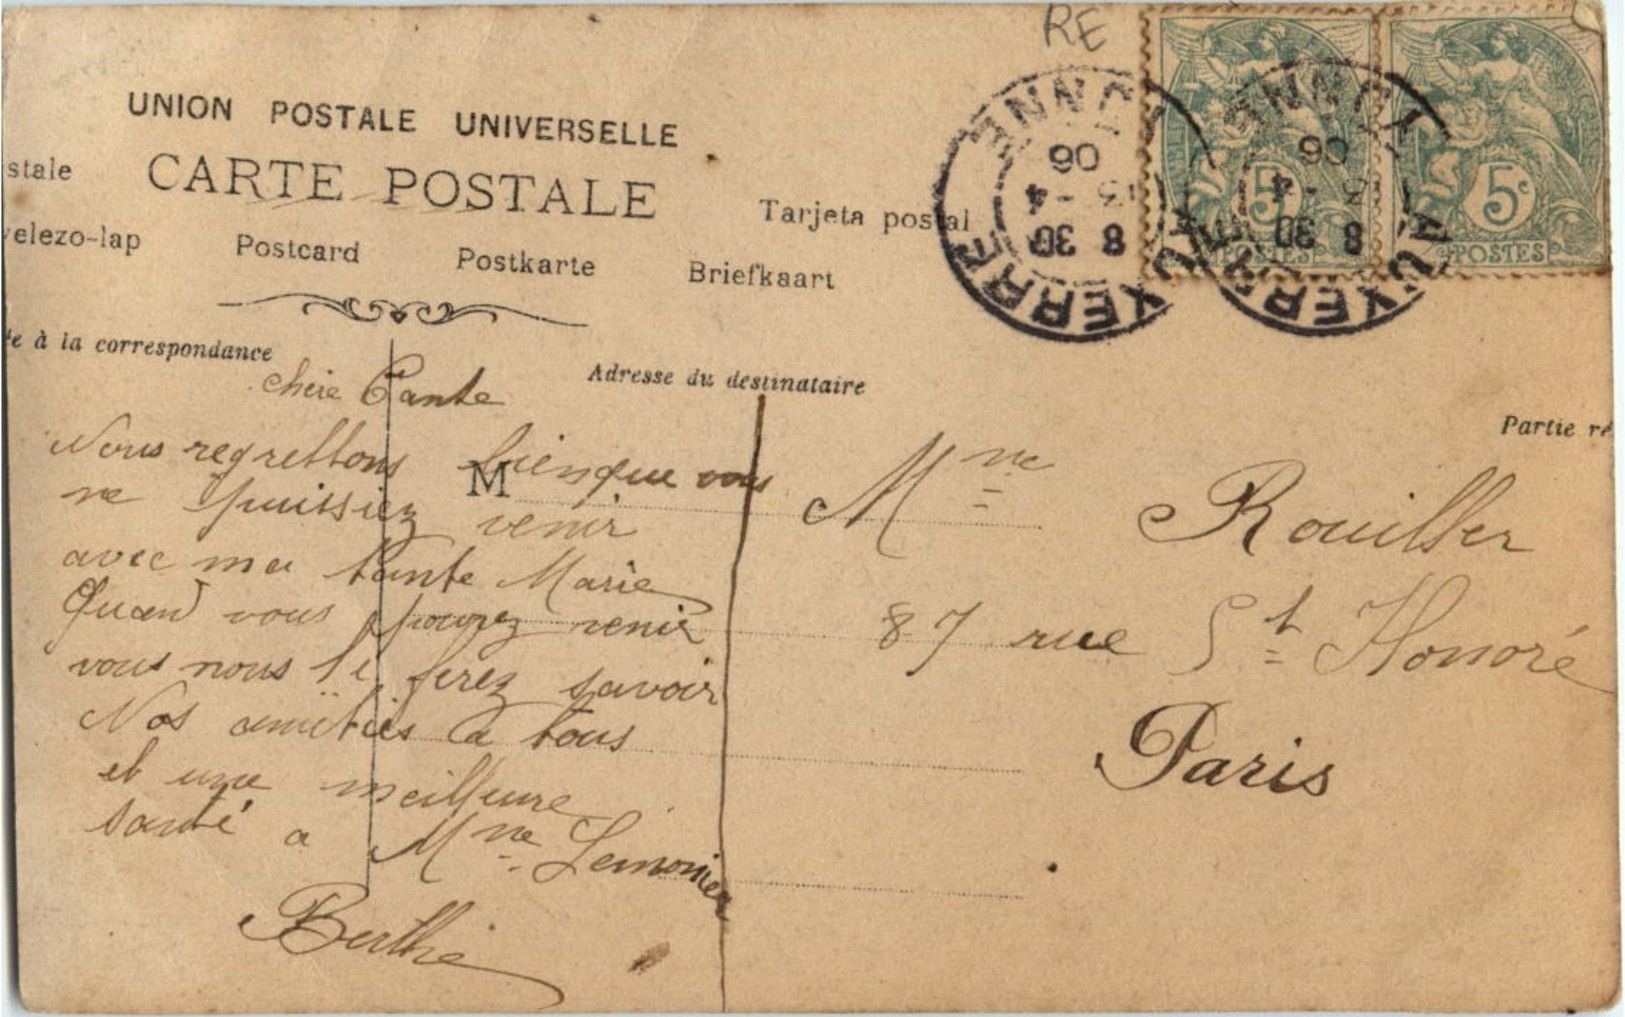 RE
UNION POSTALE UNIVERSELLE
stale CARTE POSTALE Tarjeta postal
velezo-lap Postcard Postkarte Briefkaart
5c 5c
POSTES POSTES
AUXERRE YONNE
8 30
-4
06
AUXERRE YONNE
8 30
-4
06
e à la correspondance
Adresse du destinataire
Partie ré
chère Tante
Nous regrettons bien que vous
ne puissiez venir
avec ma tante Marie
Quand vous pourez venir
vous nous le ferez savoir
Nos amitiés a tous
et une meilleure
santé a Mme Lemonier
Berthe
M
Mme Rouiller
87 rue St Honoré
Paris